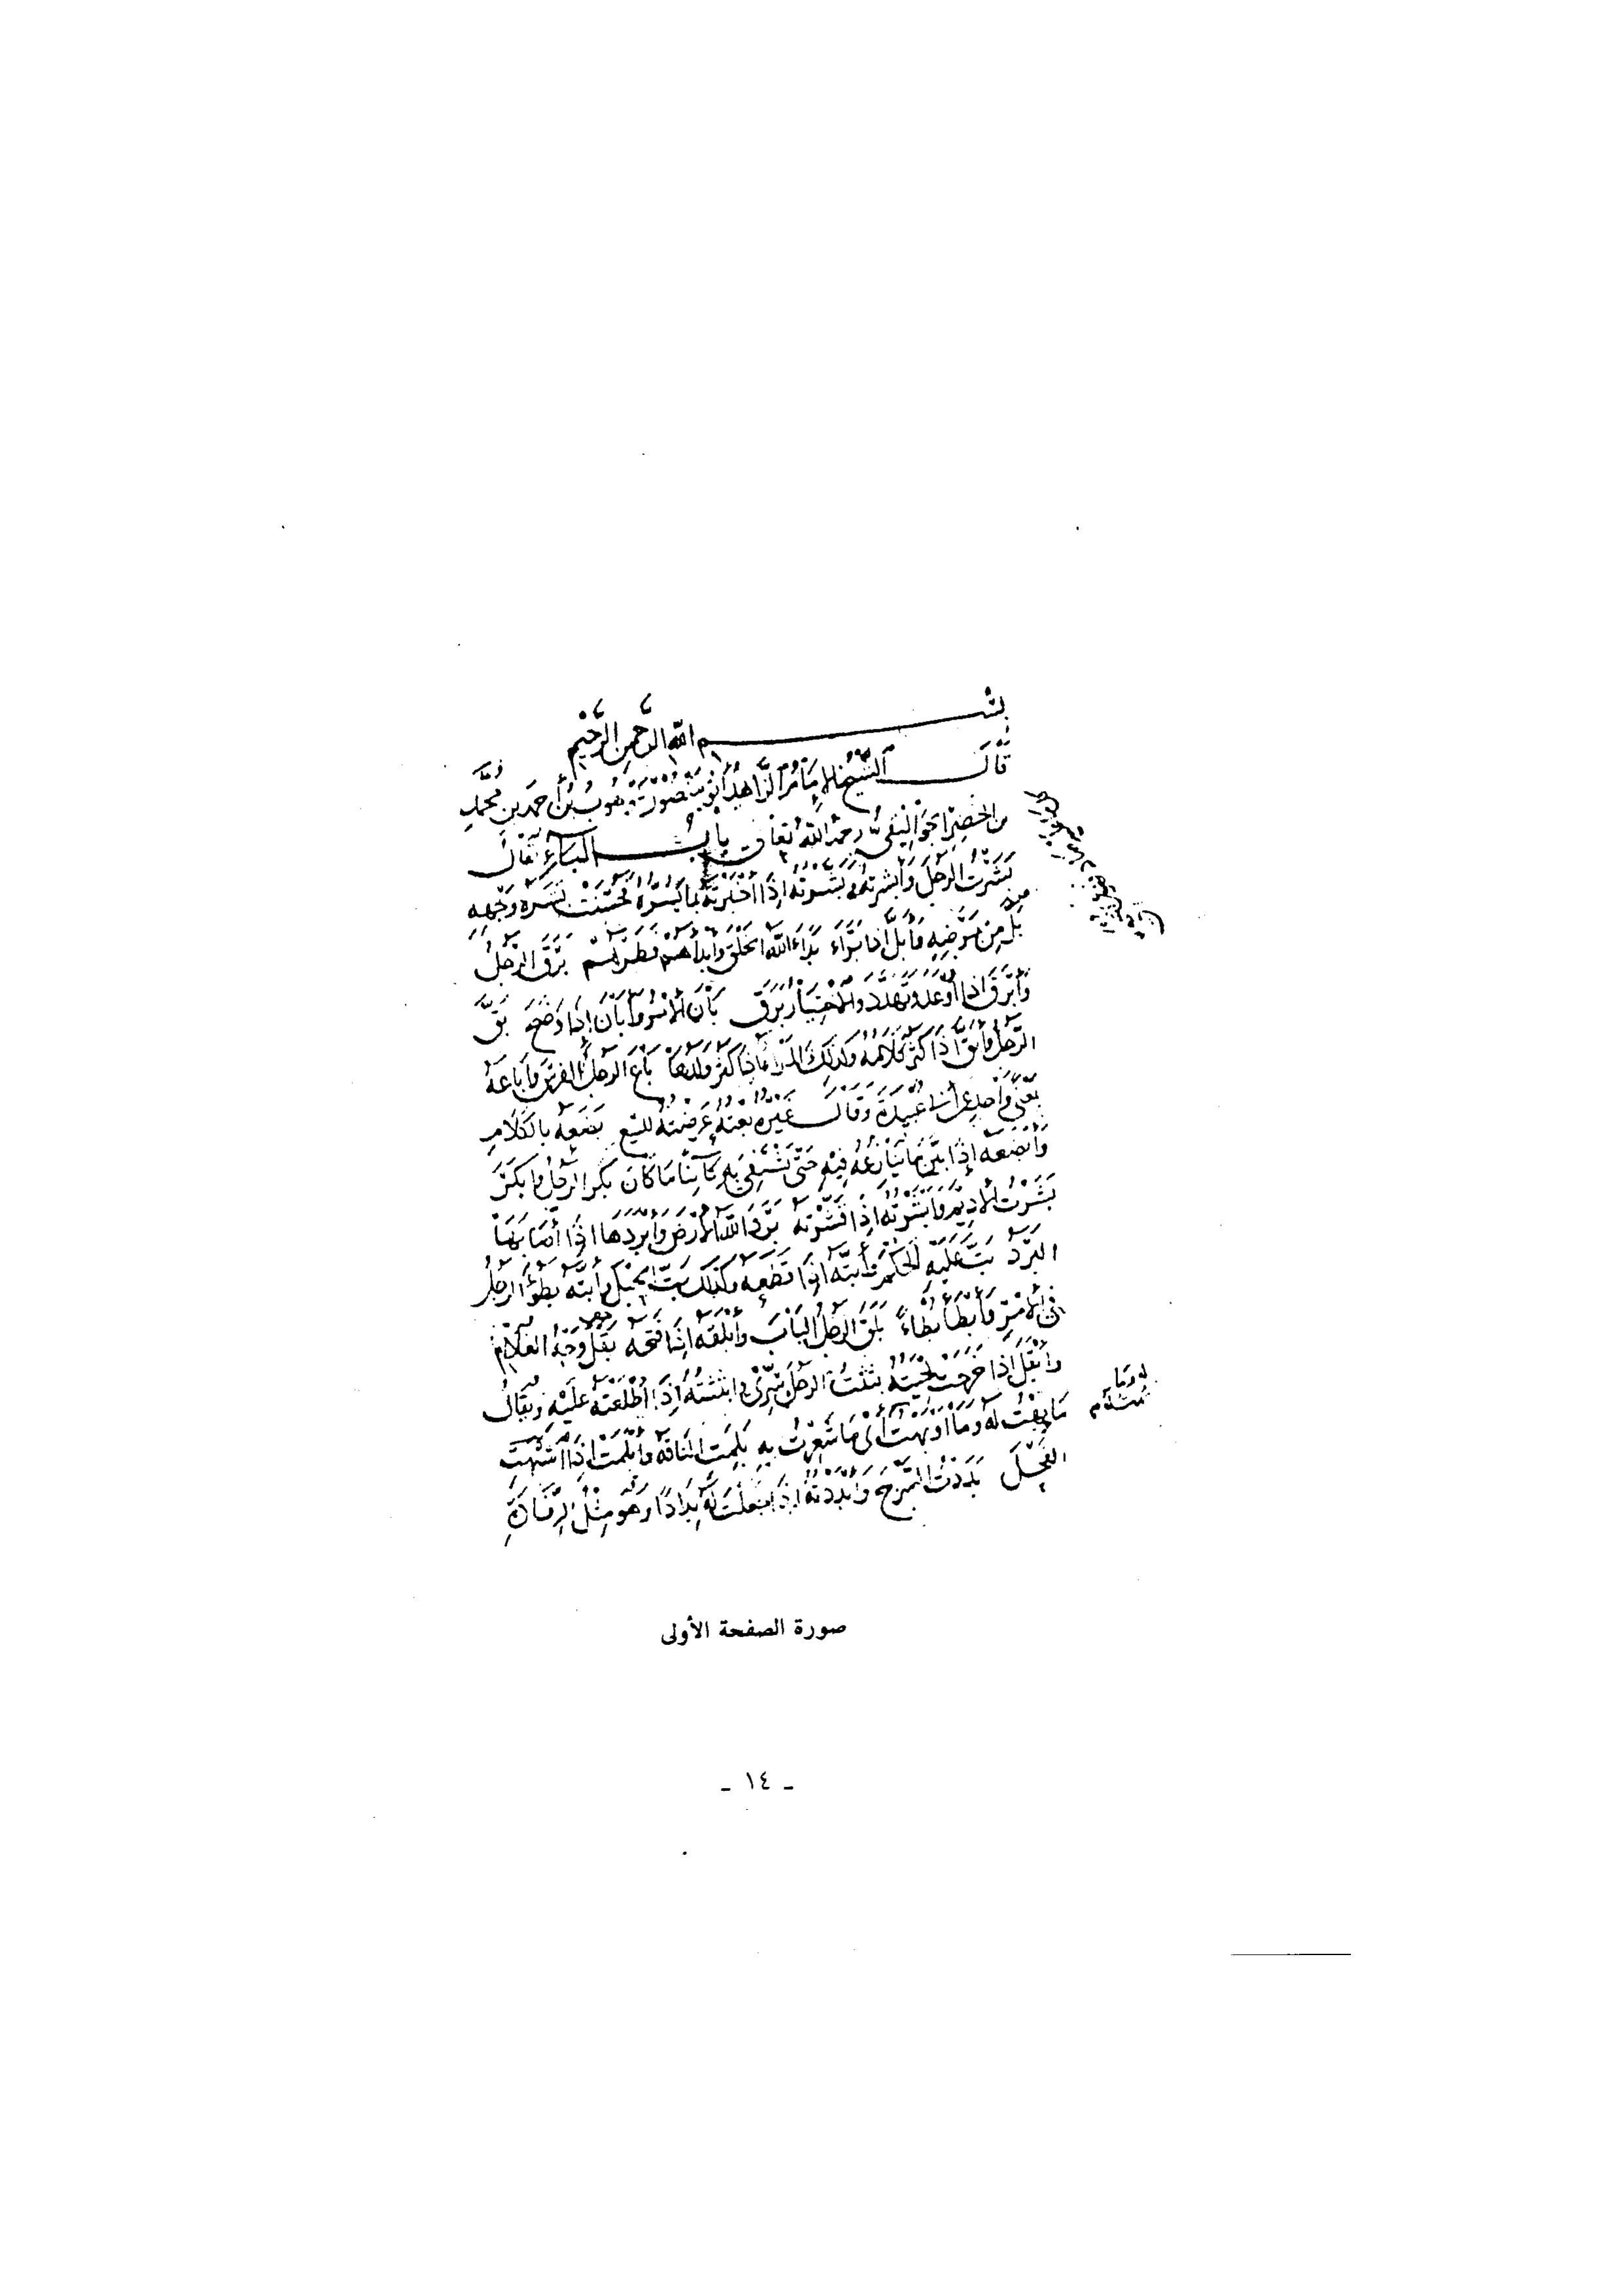 بسم الله الرحمن الرحيم
قال الشيخ الإمام الزاهد أبو منصور موهوب بن أحمد بن محمد
من الخضر الجواليقي رحمه الله تعالى باب الباء يقال
بَشَرْتُ الرجلَ وأبشرته وبشّرته إذا أخبرته بما يسرّه فحسنت بشرة وجهه
بلّ من مرضه وأبلّ إذا برأ بدأ الله الخلق وأبدأهم فطرهم برق الرجل
وأبرق إذا أوعد وتهدّد والاختيار برق بان الأمر وأبان إذا وضح بقّ
الرجل وأبقّ إذا كثر كلامه وكذلك المرأة إذا كثر ولدها باع الرجل الفرس وأباعه
بمعنى واحد عن أبي عبيدة وقال غيره بعته عرضته للبيع بضعه بالكلام
وأبضعه إذا بيّن ما ينازعه فيه حتى يشتفي به كائنا ما كان بكر الرجل وأبكر
بشرت الأديم وأبشرته إذا قشرته برد الله الأرض وأبردها إذا أصابها
البرد بتّ عليه الحكم وأبتّه إذا قطعه وكذلك بتّ الحبل وأبتّه بطؤ الرجل
في الأمر وأبطأ بطاءً بلق الرجل الباب وأبلقه إذا فتحه بقل وجه الغلام
وأبقل إذا خرجت لحيته بثثت الرجل سرّي وأبثثته إذا أطلعته عليه ويقال
ما بهت له وما أوبهت أي ما شعرت به بلمت الناقة وأبلمت إذا اشتهت
الفحل بددت السرج وأبددته إذا جعلت له بدادا وهو مثل الرفادة
صورة الصفحة الأولى
- ١٤ -